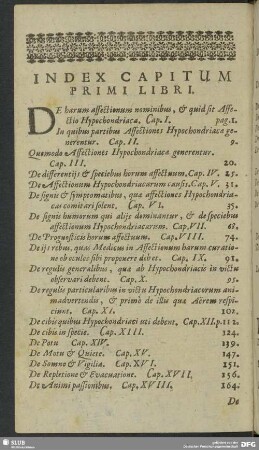 INDEX CAPITUM
PRIMI LIBRI.
DE harum affectionum nominibus, & quid sit Affe-
ctio Hypochondriaca. Cap. I. pag. 1.
In quibus partibus Affectiones Hypochondriacæ ge-
nerentur. Cap. II. 9.
Quomodo Affectiones Hypochondriacæ generentur.
Cap. III. 20.
De differentijs & speciebus horum affectuum. Cap. IV. 25.
De Affectionum Hypochondriacarum causis. Cap. V. 31.
De signis & symptomatibus, quæ affectiones Hypochondria-
cas comitari solent, Cap. VI. 35.
De signis humorum qui alijs dominantur, & de speciebus
affectionum Hypochondriacarum. Cap. VII. 61.
De Prognosticis horum affectuum. Cap. VIII. 74.
De ijs rebus, quas Medicus in Affectionum harum curatio-
ne ob oculos sibi proponere debet. Cap. IX. 91.
De regulis generalibus, quæ ab Hypochondriacis in victu
observari debent. Cap. X. 95.
De regulis particularibus in victu Hypochondriacorum ani-
madvertendis, & primò de illis quæ Aërem respi-
ciunt. Cap. XI. 102.
De cibis quibus Hypochondriaci uti debent. Cap. XII. p. 112.
De cibis in specie. Cap. XIII. 124.
De Potu Cap. XIV. 139.
De Motu & Quiete. Cap. XV. 147.
De Somno & Vigilia. Cap. XVI. 151.
De Repletione & Evacuatione. Cap. XVII. 156.
De Animi passionibus. Cap. XVIII. 164.
De
SLUB
DFG